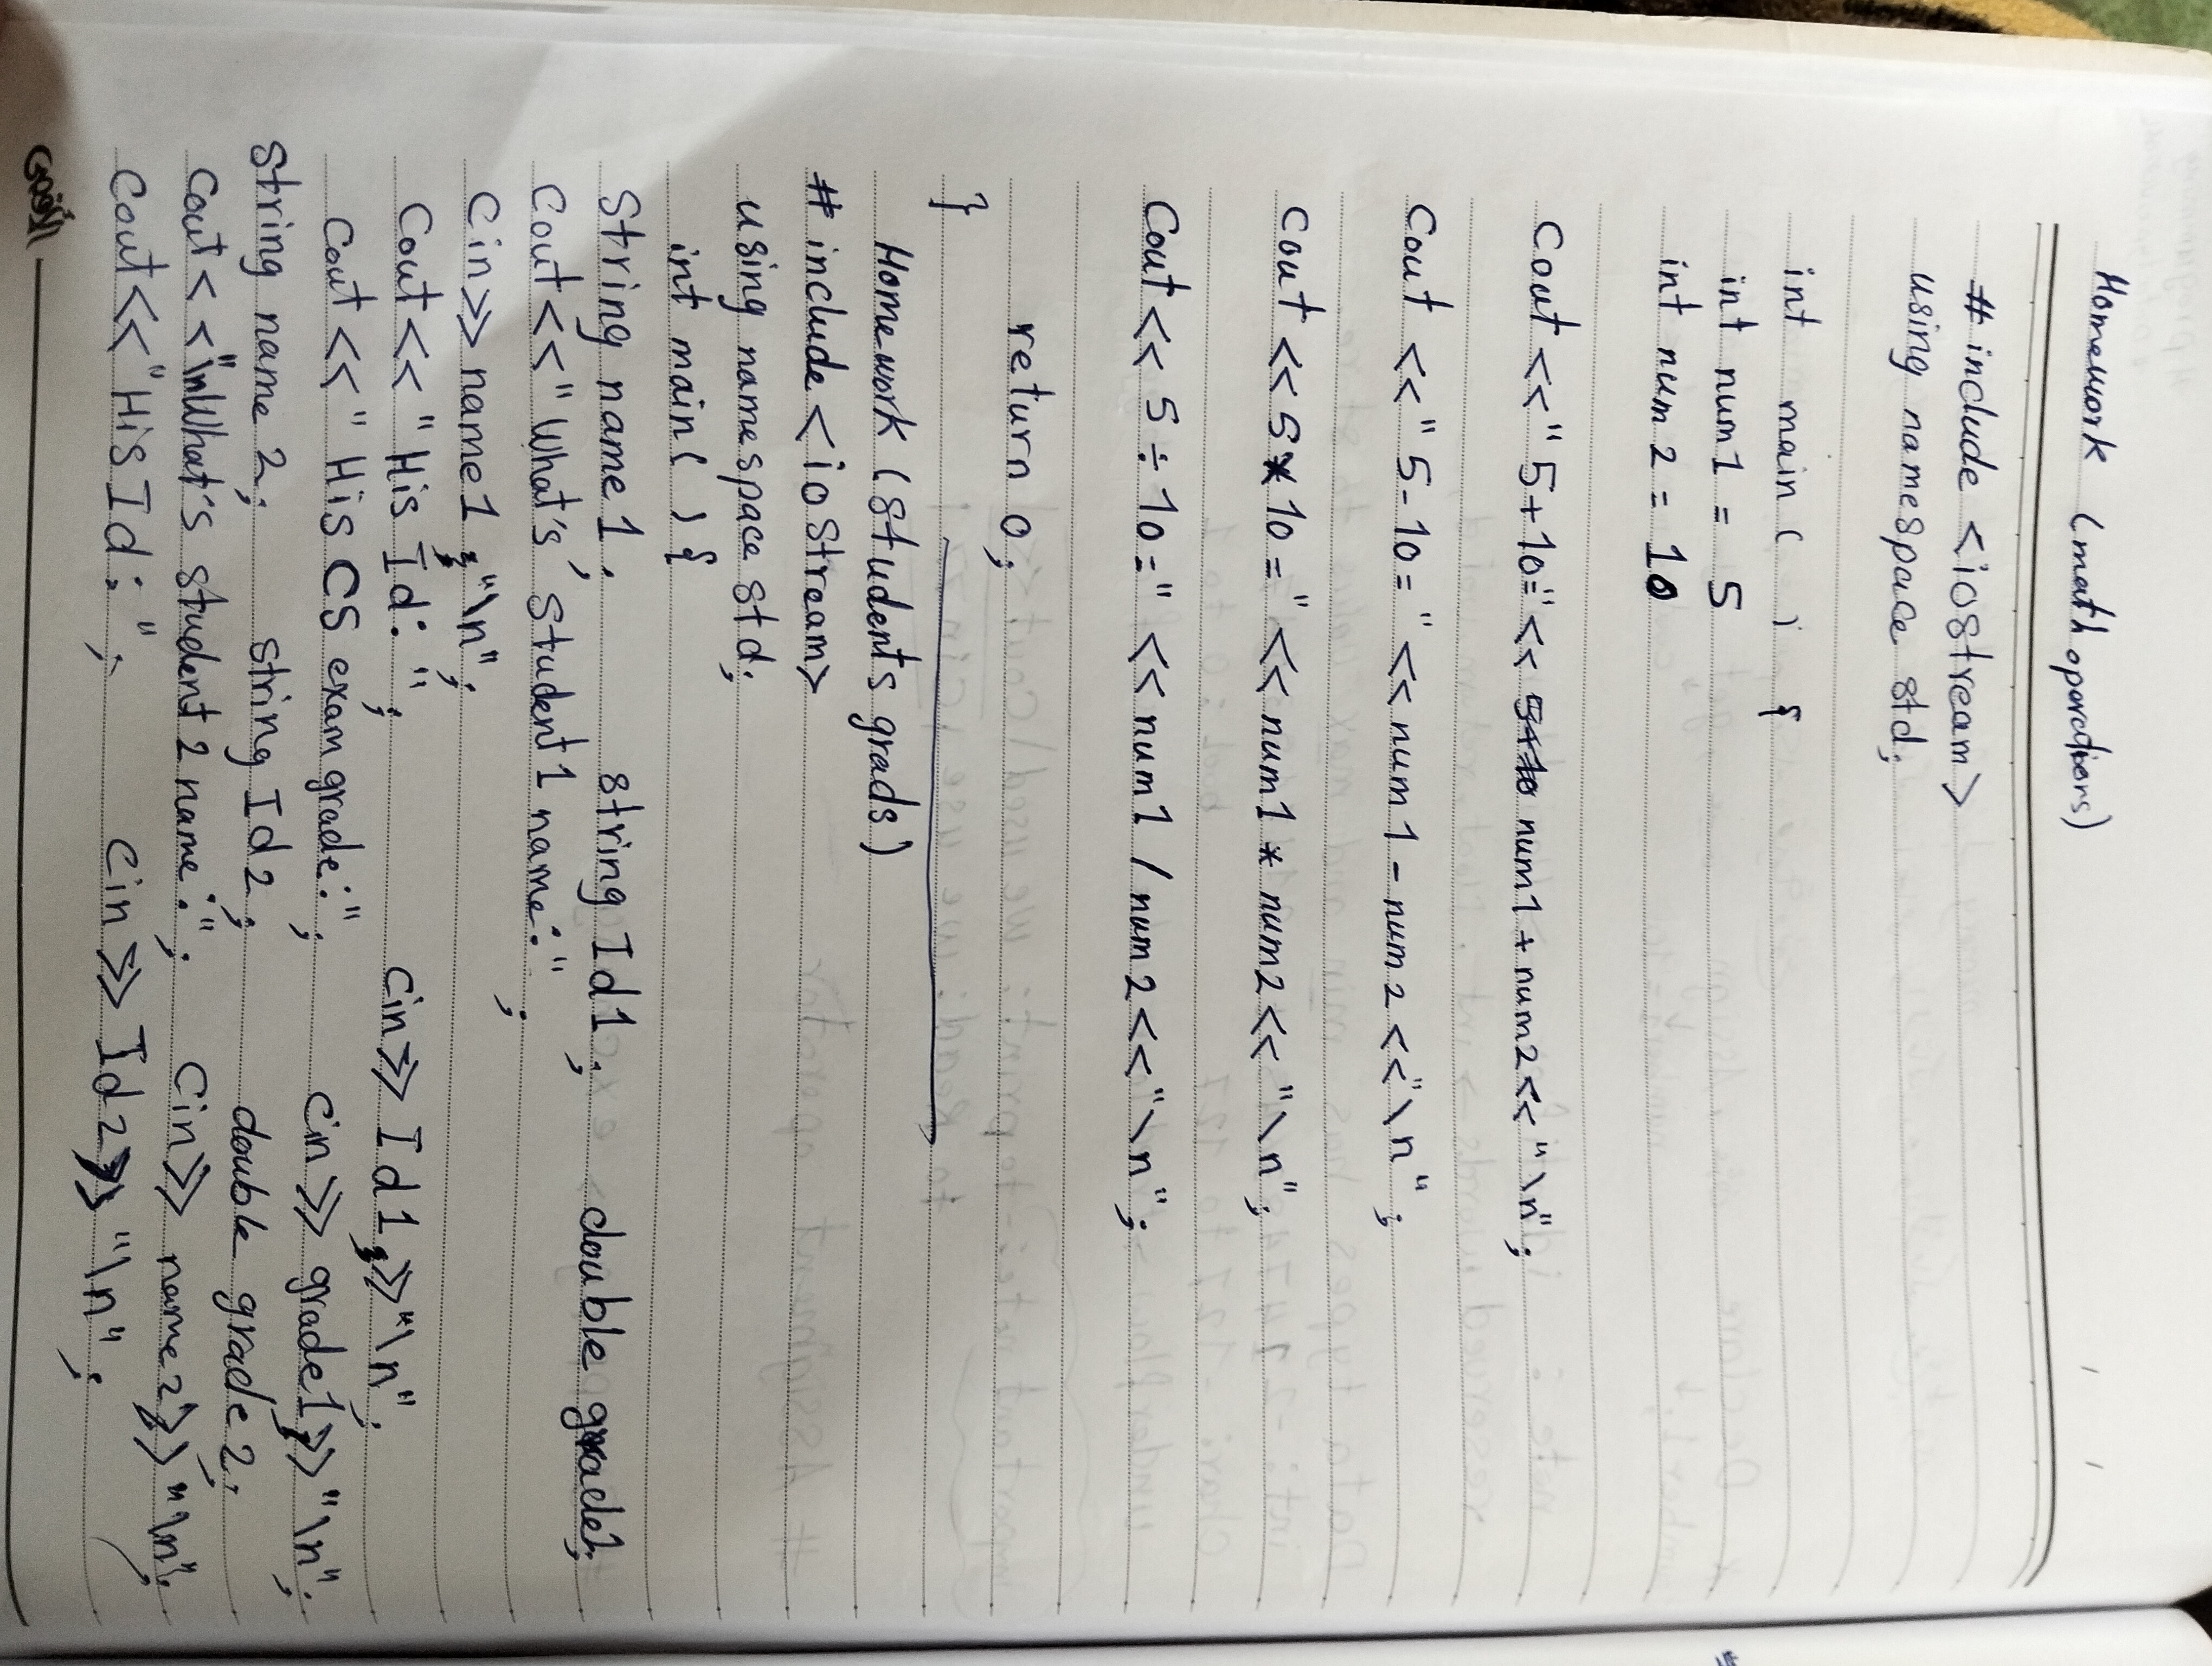 Homework (math oparadiors)
# include <iostream>
using namespace std;
int main ( ) {
int num1 = 5
int num2 = 10
Cout << "5+10=" << num1 + num2 << "\n";
Cout << "5-10=" << num1 - num2 << "\n";
Cout << 5*10 =" << num1 * num2 << "\n";
Cout << 5÷10=" << num1 / num2 << "\n";
return 0;
}
Homework (students grads)
# include <iostream>
using namespace std;
int main( ) {
String name1; string Id1; double grade1;
Cout << "What's student1 name:" ;
Cin >> name1; "\n";
Cout << "His Id: "; Cin >> Id1 >> "\n";
Cout << "His CS exam grade:"; Cin >> grade1 >> "\n";
String name2; string Id2; double grade2;
Cout << "\nWhat's student2 name:"; Cin >> name2 >> "\n";
Cout << "His Id: "; Cin >> Id2 >> "\n";